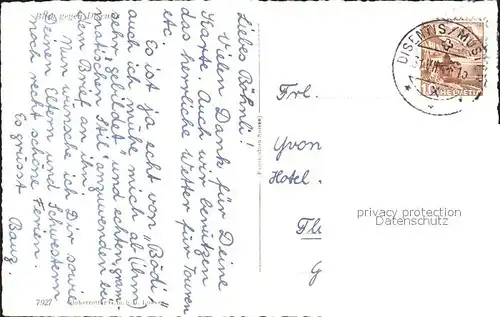 Liebes Böhnli!
Vielen Dank für Deine
Karte. Auch wir benützen
das herrliche Wetter für Touren
etc.
Es ist ja echt von "Bödi"
auch ich mühe mich ab (ihm
sehr "gebildet" und echten gram-
matischen Stil anzuwenden bei
dem Brief an ihn.
Nun wünsche ich Dir sowie
Deinen Eltern und Schwestern
noch recht schöne Ferien.
Es grüsst
Bouz.
7927
DISENTIS/MUSTER
HELVETIA
Frl.
Yvon
Hotel
Flu
G
privacy protection
Datenschutz